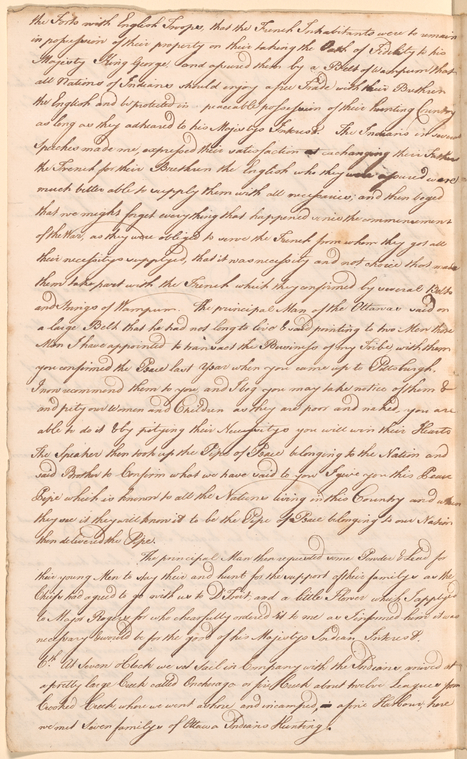 the Forts with English Troops, that the French Inhabitants were to remain
in possession of their property on their taking the Oath of Fidelity to his
Majesty King George, and assured them by a Belt of Wampum that
all Nations of Indians should enjoy a free Trade with their Brethren
the English and be protected in peaceable possession of their hunting Country
as long as they adhered to his Majestys Interest. The Indians in several
Speeches made me, expressed their satisfaction at exchanging their Fathers
the French for their Brethren the English who they were assured were
much better able to supply them with all necessaries, and then beged
that we might forget everything that happened since the commencement
of the War, as they were obliged to serve the French from whom they got all
their necessitys supplyed, that it was necessity and not choice that made
them take part with the French which they confirmed by several Belts
and Strings of Wampum. The principal Man of the Ottawas said on
a large Belt that he had not long to live & said pointing to two Men those
Men I have appointed to transact the Business of my Tribe with them
you confirmed the Peace last Year when you came up to Pittsburgh.
I now recommend them to you, and I beg you may take notice of them &
and pity our Women and Children as they are poor and naked, you are
able to do it & by pitying their Necessitys you will win their Hearts
The Speaker then took up the Pipe of Peace belonging to the Nation and
said Brother to Confirm what we have said to you I give you this Peace
Pipe which is known to all the Nations living in this Country and when
they see it they will know it to be the Pipe of Peace belonging to our Nation
then delivered the Pipe.
The principal Man then requested some Powder & Lead for
their young Men to stay there and hunt for the support of their familys as the
Chiefs had agreed to go with us to D'Troit, and a little Flower which I applyed
to Major Rogers for who chearfully ordered it to me as I informed him it was
necessary & would be for the good of his Majestys Indian Interest.
6th. At Seven oClock we set Sail in Company with the Indians, arrived at
a pretty large Creek called Oncheago or fir Creek about twelve Leagues from
Crooked Creek where we went ashore and incamped, in a fine Harbour, here
we met Seven familys of Ottawa Indians Hunting.